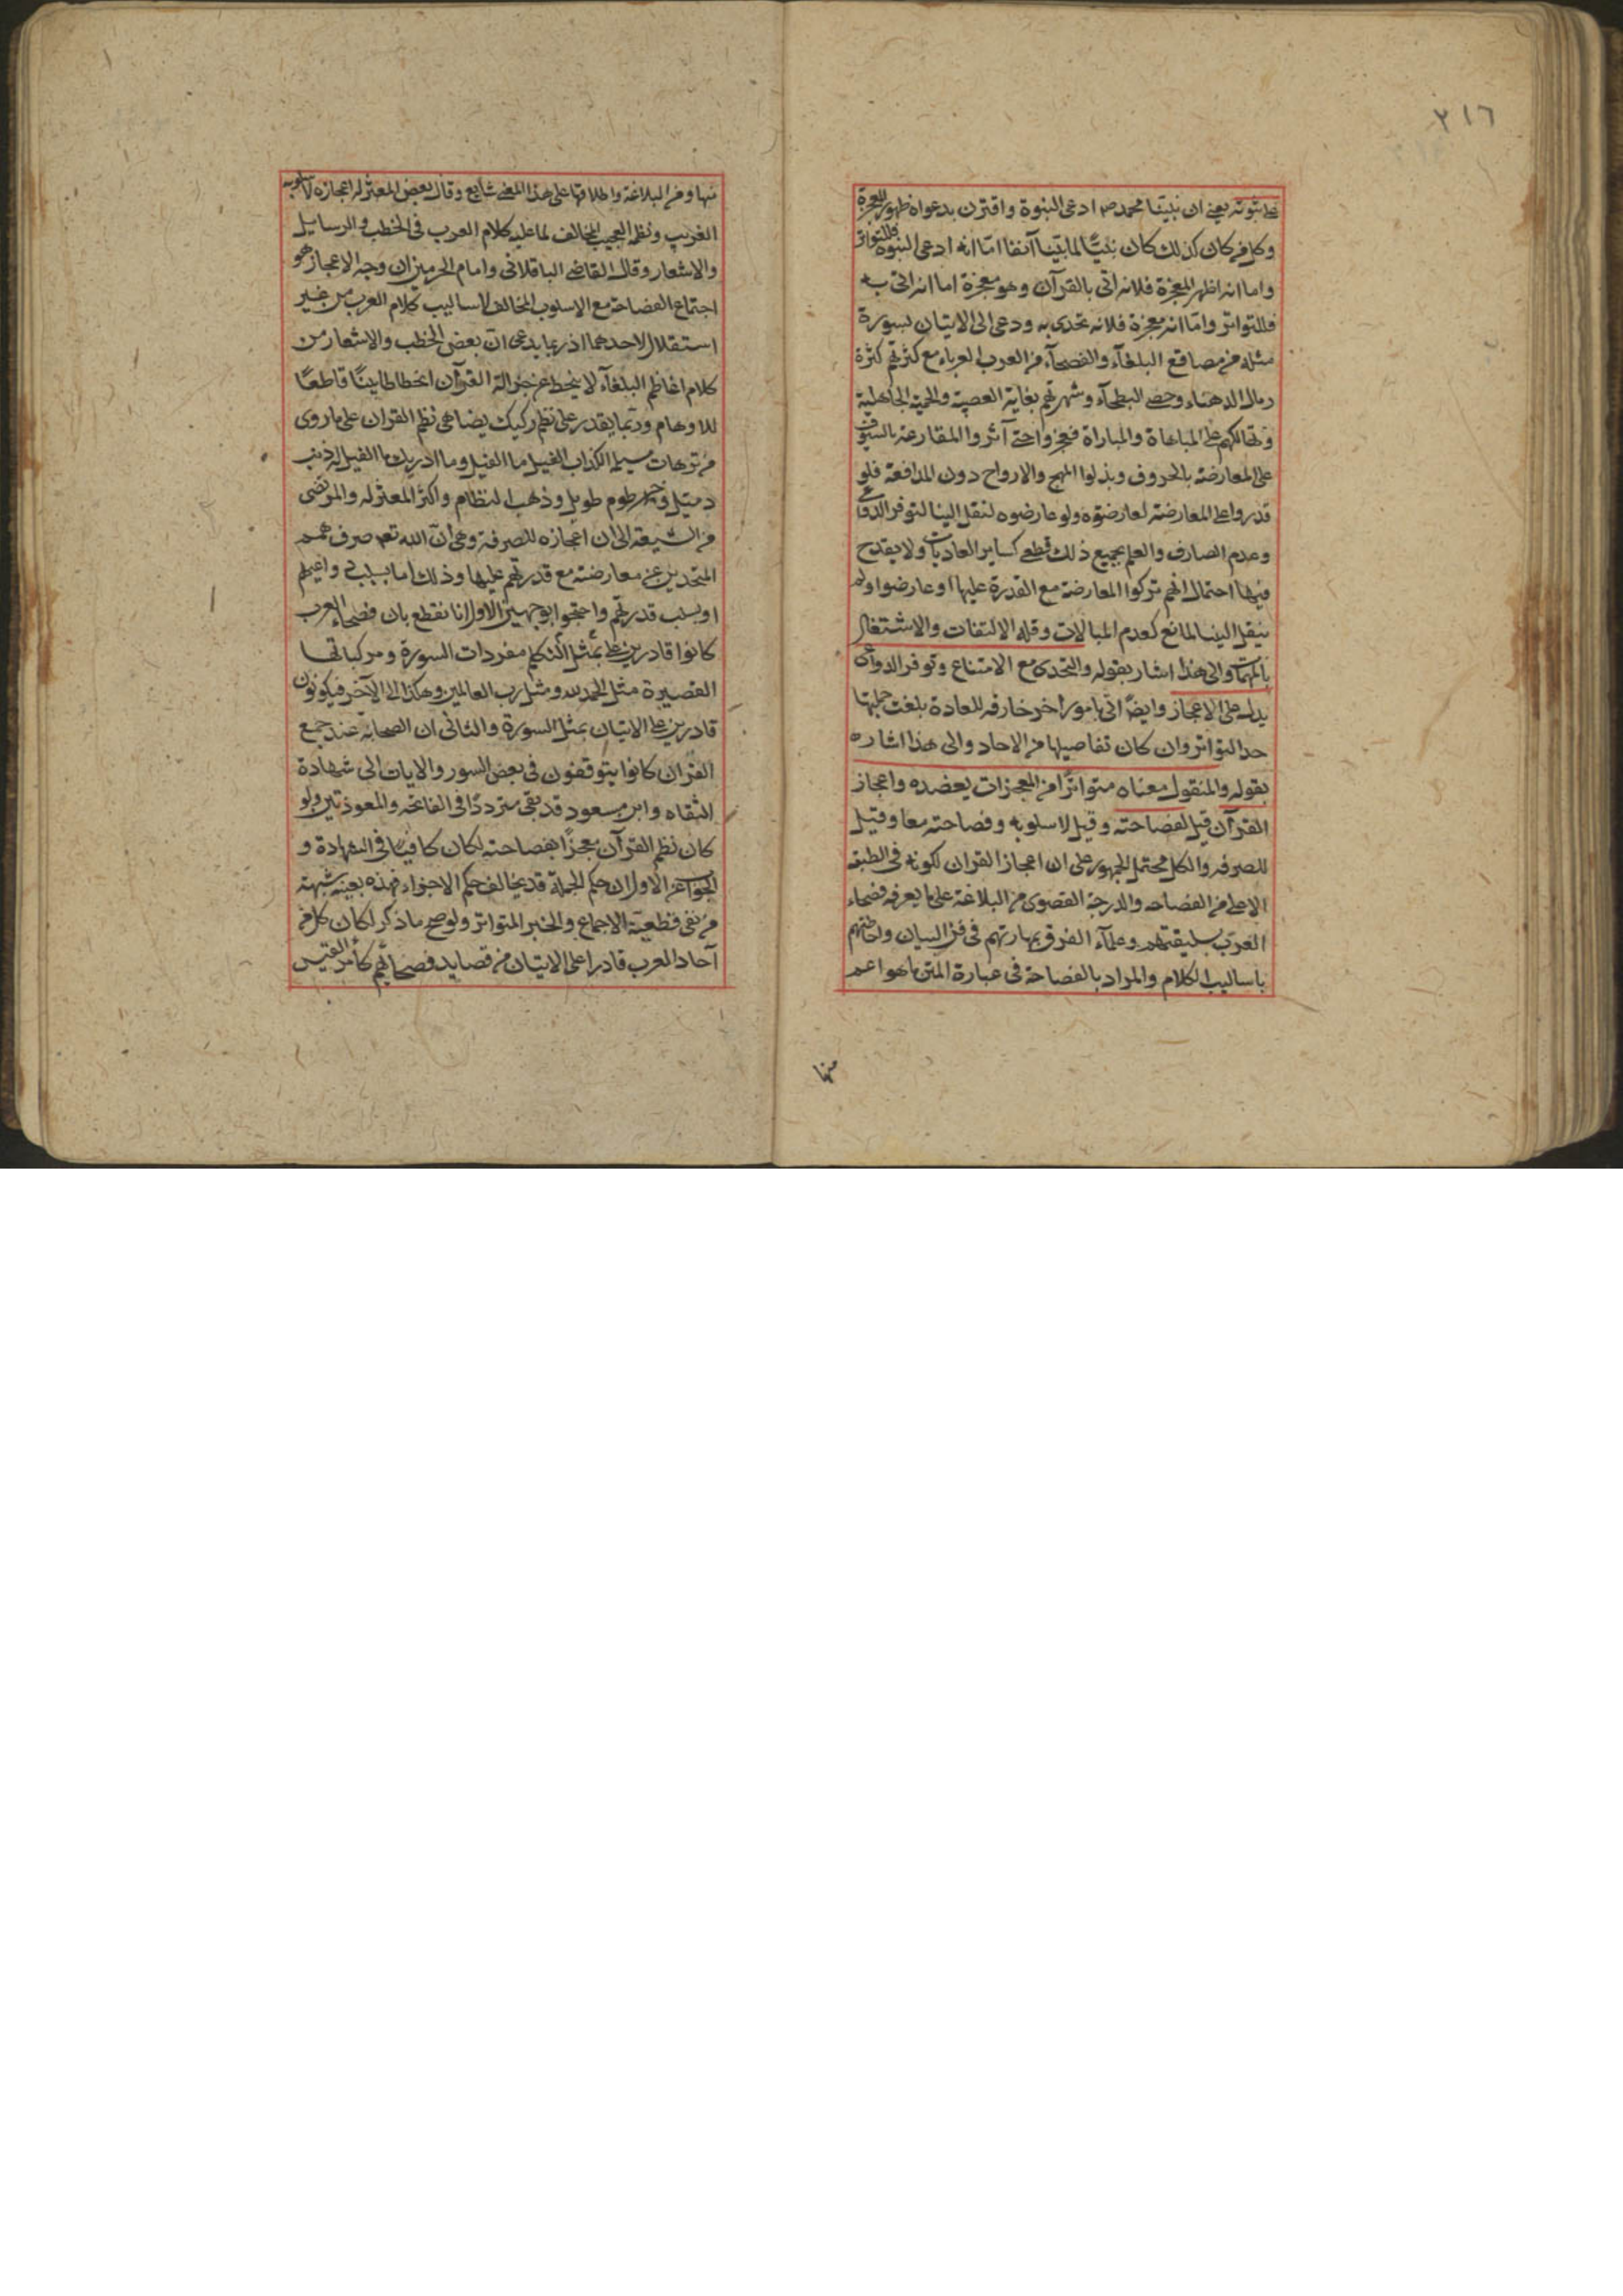 ٣١٦
على نبوته يعنى ان نبينا محمد صم ادعى النبوة واقترن بدعواه ظهور المعجزة
وكل من كان كذلك كان نبيًّا لما بيّنا آنفا امّا انه ادعى النبوة فللتواتر
واما انه اظهر المعجزة فلانه اتى بالقرآن وهو معجزة اما انه اتى به
فللتواتر وامّا انه معجزة فلانه تحدى به ودعى الى الاتيان بسورة
مثله من مصاقع البلغآء والفصحآء من العرب العرباء مع كثرتهم كثرة
رمال الدهناء وحصى البطحآء وشهرتهم بغاية العصبية والحمية الجاهلية
وتهالكهم على المباهاة والمباراة فعجزوا حتى آثروا المقارعة بالسيوف
على المعارضة بالحروف وبذلوا المهج والارواح دون المدافعة فلو
قدروا على المعارضة لعارضوه ولو عارضوه لنقل الينا لتوفر الدواعى
وعدم الصارف والعلم بجميع ذلك قطعى كساير العاديات ولا يقدح
فيها احتمال انهم تركوا المعارضة مع القدرة عليها او عارضوا ولم
ينقل الينا لمانع كعدم المبالات وقله الالتفات والاشتغال
بالمهمات والى هذا اشار بقوله والتحدى مع الامتناع وتوفر الدواعى
يدل على الاعجاز وايضًا اتى بامور اخر خارقه للعادة بلغت جملتها
حد التواتر وان كان تفاصيلها من الاحاد والى هذا اشاره
بقوله والمنقول معناه متواترًا من المعجزات يعضده واعجاز
القرآن قيل لفصاحته وقيل لاسلوبه وفصاحته معا وقيل
للصرفه والكل محتمل الجمهور على ان اعجاز القران لكونه فى الطبقه
الاعلى من الفصاحه والدرجة القصوى من البلاغة على ما يعرفه فصحاء
العرب بسليقتهم وعلمآء الفرق بمهارتهم فى فن البيان واحاطتهم
باساليب الكلام والمراد بالفصاحة فى عبارة المتن ما هو اعم
منها
منها ومن البلاغة واطلاقها على هذا المعنى شايع وقال بعض المعتزله اعجازه لاسلوبه
الغريب ونظمه العجيب المخالف لما عليه كلام العرب فى الخطب والرسايل
والاشعار وقال القاضى الباقلانى وامام الحرمين ان وجه الاعجاز هو
اجتماع الفصاحة مع الاسلوب المخالف لاساليب كلام العرب من غير
استقلال لاحدهما اذ ربما يدعى ان بعض الخطب والاشعار من
كلام اعاظم البلغآء لا ينحط عن جزالة القرآن انحطاطا بينًا قاطعًا
للاوهام وربما يقدر على نظم ركيك يضاهى نظم القران على ما روى
من ترهات مسيلمه الكذاب الفيل ما الفيل وما ادريك ما الفيل له ذنب
دميل وخرطوم طويل وذهب النظام واكثر المعتزله والمرتضى
من الشيعة الى ان اعجازه للصرفة وهى ان الله تعم صرف همم
المتحدين عن معارضته مع قدرتهم عليها وذلك اما بسلب دواعيهم
او بسلب قدرتهم واحتجوا بوجهين الاول انا نقطع بان فصحاء العرب
كانوا قادرين على التكلم بمثل مفردات السورة ومركباتها
القصيرة مثل الحمد لله ومثل رب العالمين وهكذا الى الآخر فيكونون
قادرين على الاتيان بمثل السورة والثانى ان الصحابة عند جمع
القران كانوا يتوقفون فى بعض السور والايات الى شهادة
الثقاه وابن مسعود قد بقى مترددًا فى الفاتحه والمعوذتين ولو
كان نظم القرآن معجزًا بفصاحته لكان كافيًا فى الشهادة و
الجواب عن الاول ان حكم الجملة قد يخالف حكم الاجزاء فهذه بعينه شبهة
من نفى قطعية الاجماع والخبر المتواتر ولو صح ماذكر لكان كل من
آحاد العرب قادرا على الاتيان من قصايد فصحائهم كامرء القيس